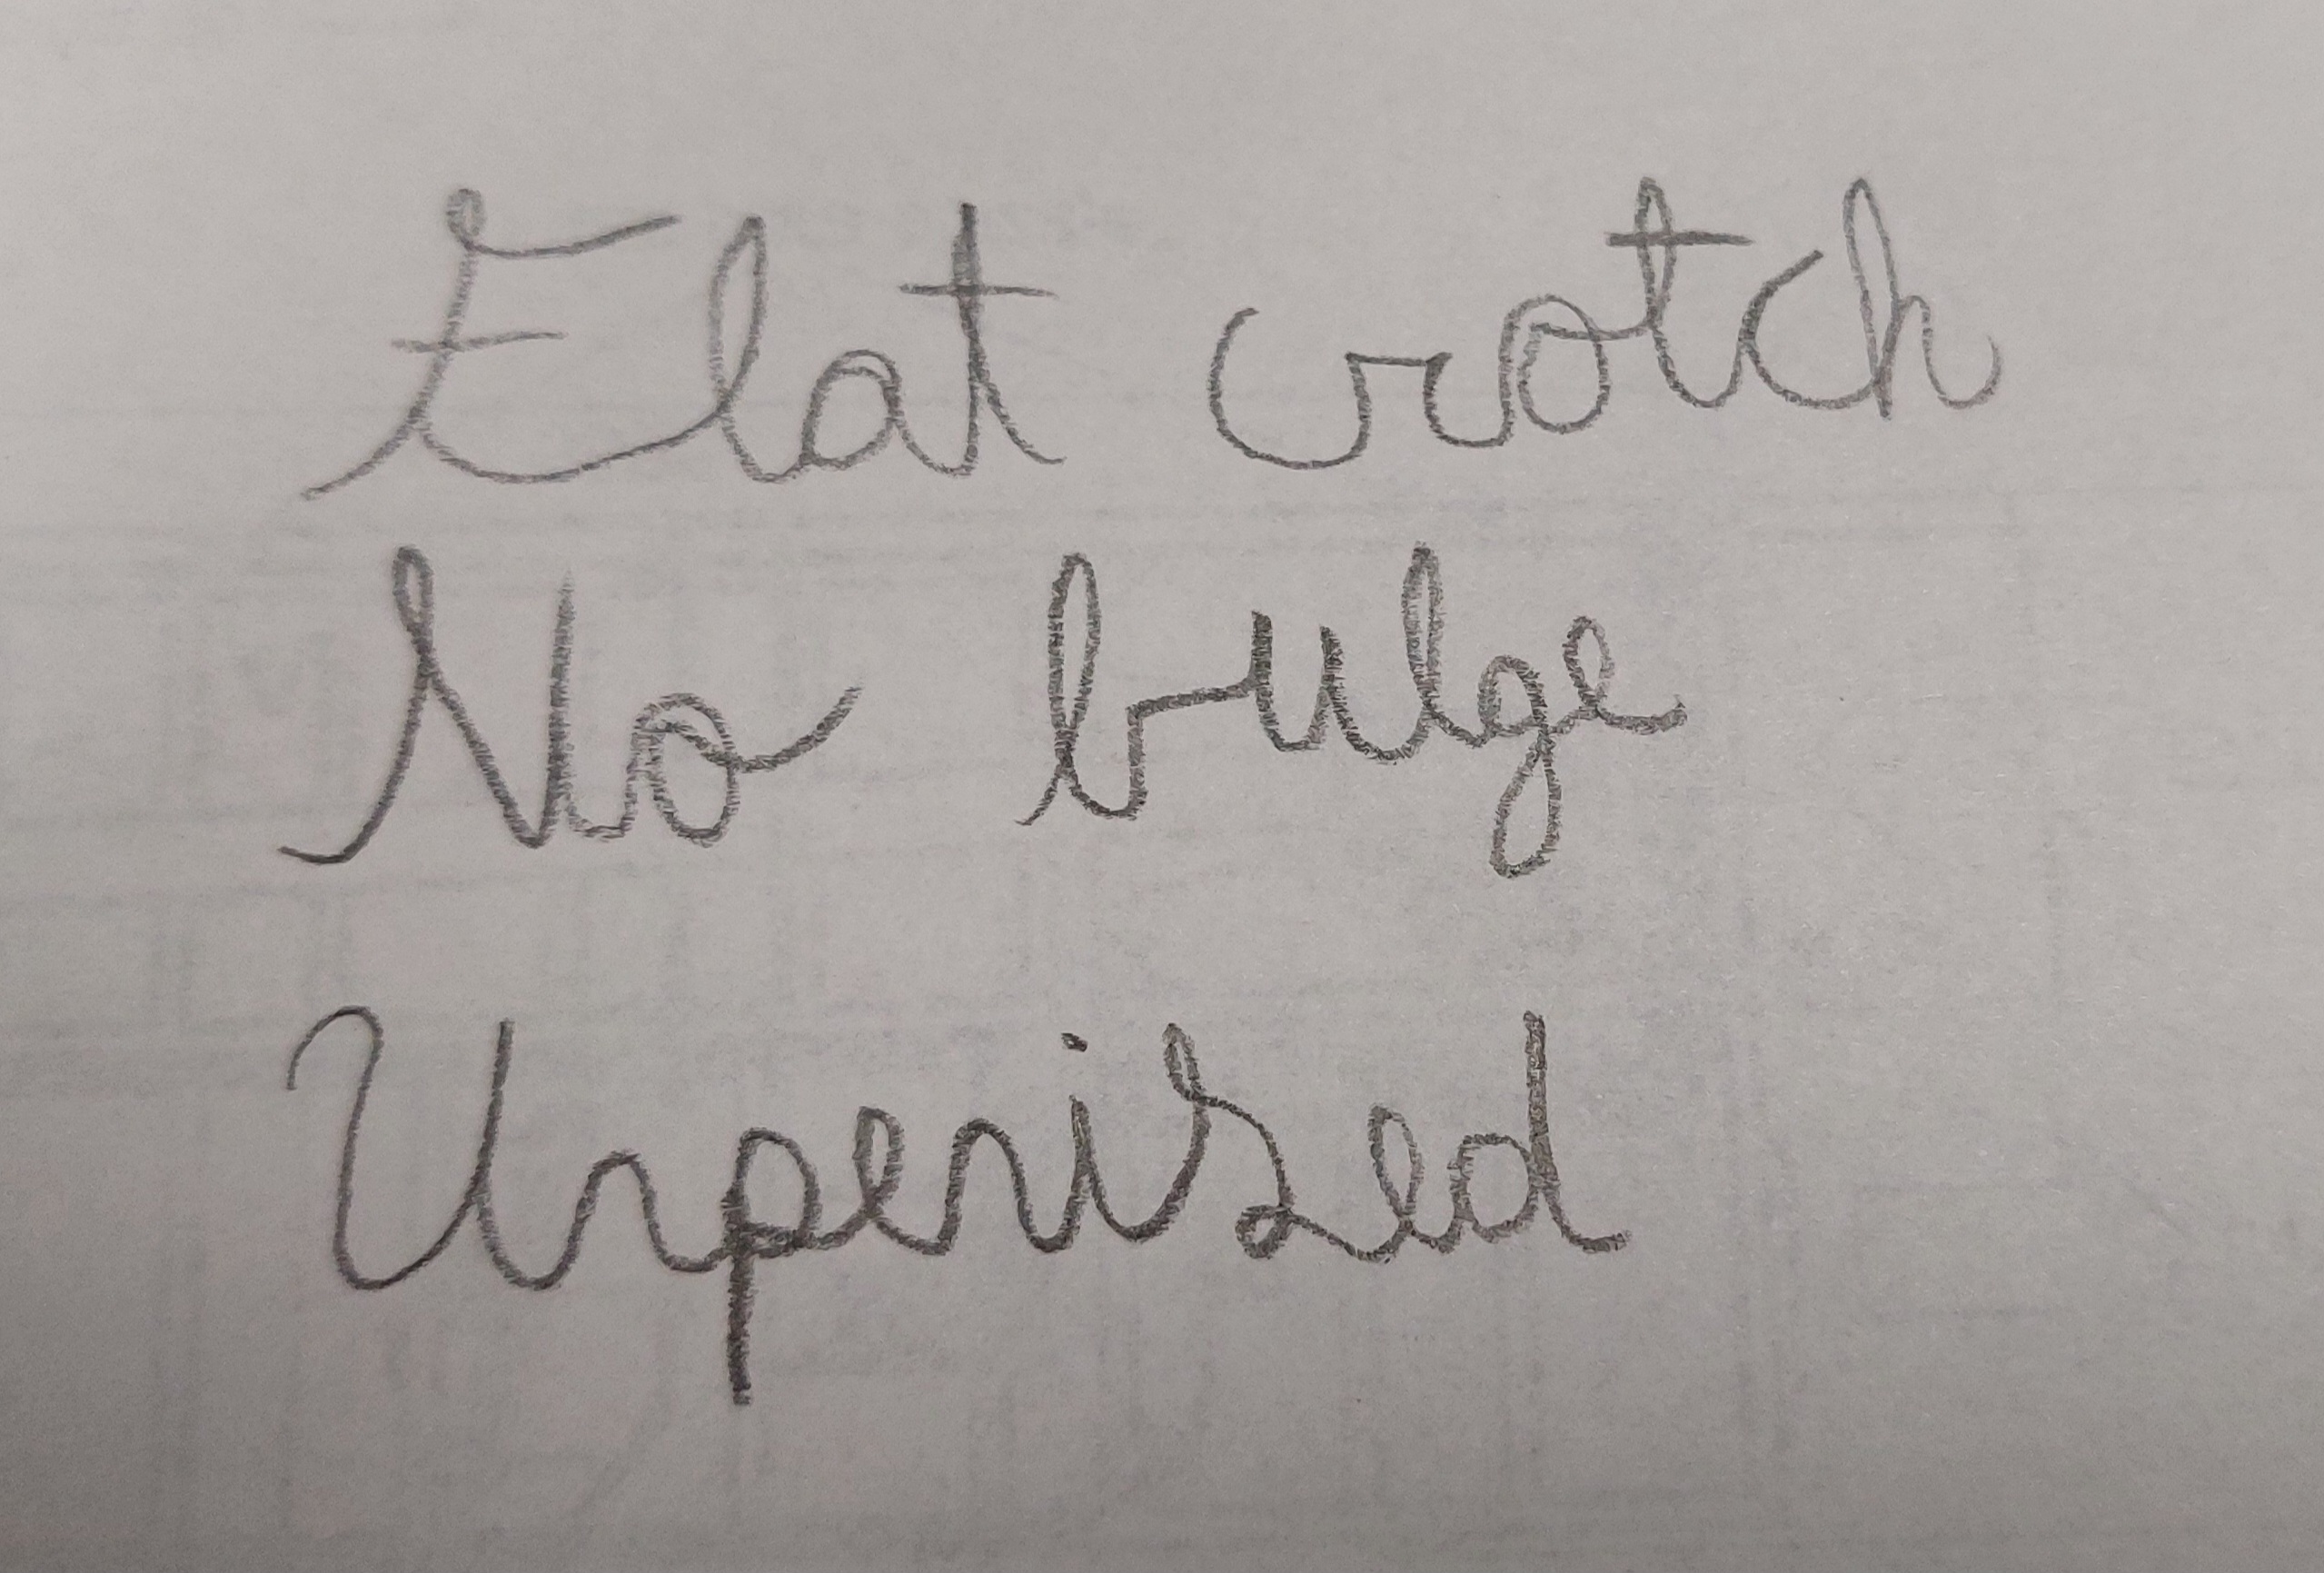 Flat crotch
No bulge
Unpenised